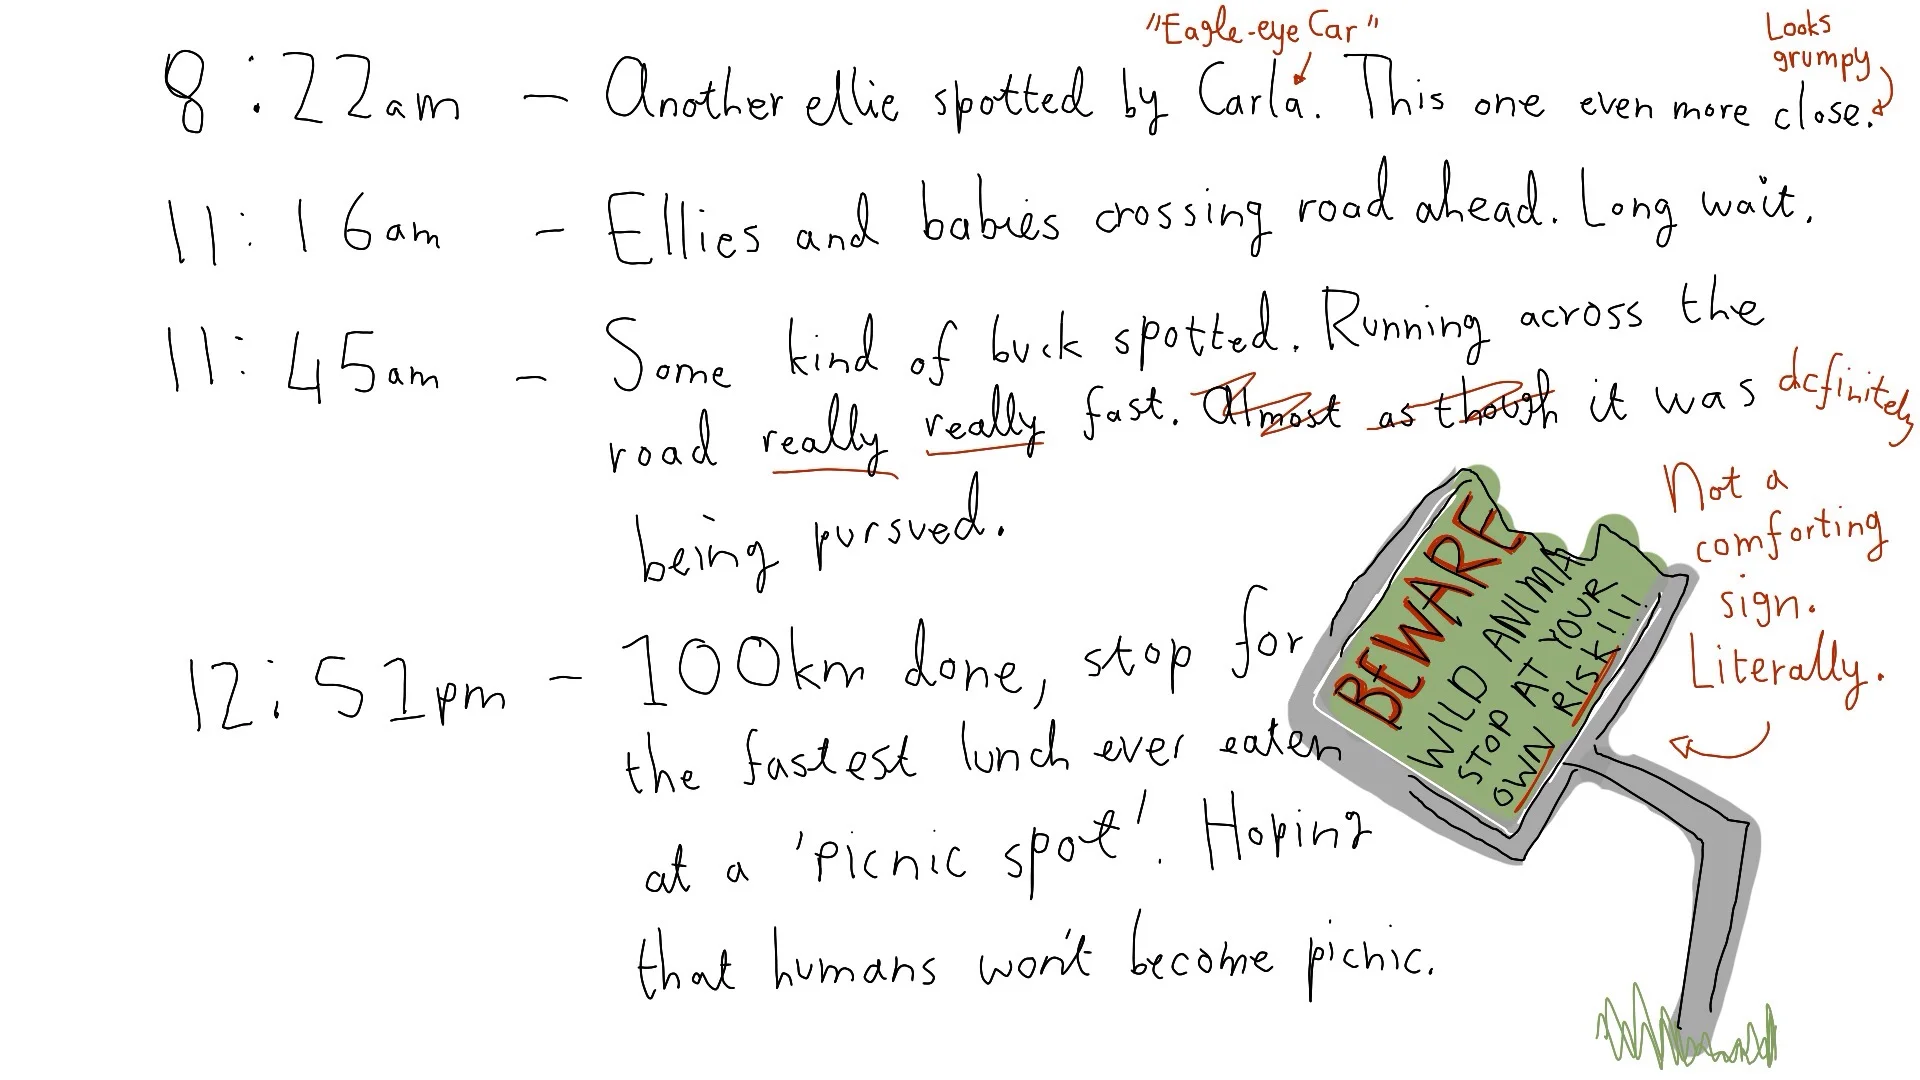 "Eagle-eye Car"
Looks
grumpy
8:22am - Another ellie spotted by Carla. This one even more close.
11:16am - Ellies and babies crossing road ahead. Long wait.
11:45am - Some kind of buck spotted. Running across the
road really really fast. Almost as though it was definitely
being pursued.
Not a
comforting
sign.
Literally.
BEWARE
WILD ANIMA
STOP AT YOUR
OWN RISK!!!
12:51pm - 100km done, stop for
the fastest lunch ever eaten
at a 'picnic spot'. Hoping
that humans won't become picnic.